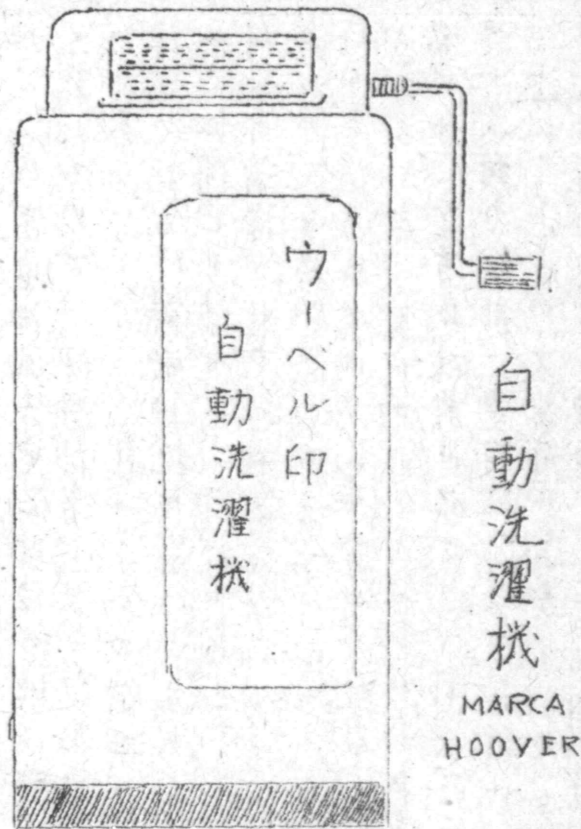 ウーベル印
自動洗濯機
自動洗濯機
MARCA
HOOVER